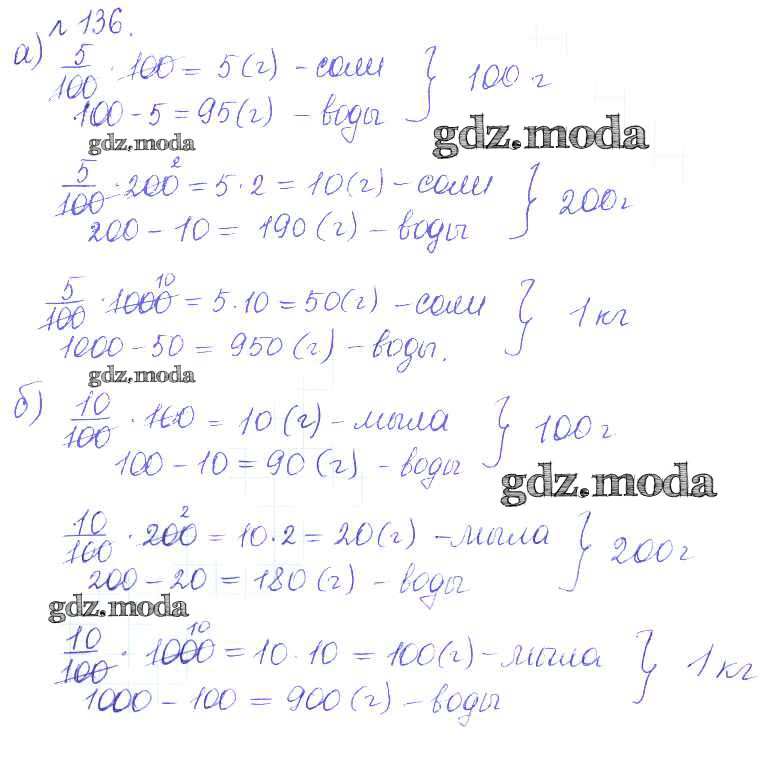 № 136.
а) 5/100 · 100 = 5(г) – соли } 100 г
100 – 5 = 95(г) – воды
gdz.moda
gdz.moda
5/100 · 200 2 = 5 · 2 = 10(г) – соли } 200 г
200 – 10 = 190(г) – воды
5/100 · 1000 10 = 5 · 10 = 50(г) – соли } 1 кг
1000 – 50 = 950(г) – воды.
gdz.moda
б) 10/100 · 100 = 10(г) – мыла } 100 г
100 – 10 = 90(г) – воды
gdz.moda
10/100 · 200 2 = 10 · 2 = 20(г) – мыла } 200 г
200 – 20 = 180(г) – воды
gdz.moda
10/100 · 1000 10 = 10 · 10 = 100(г) – мыла } 1 кг
1000 – 100 = 900(г) – воды